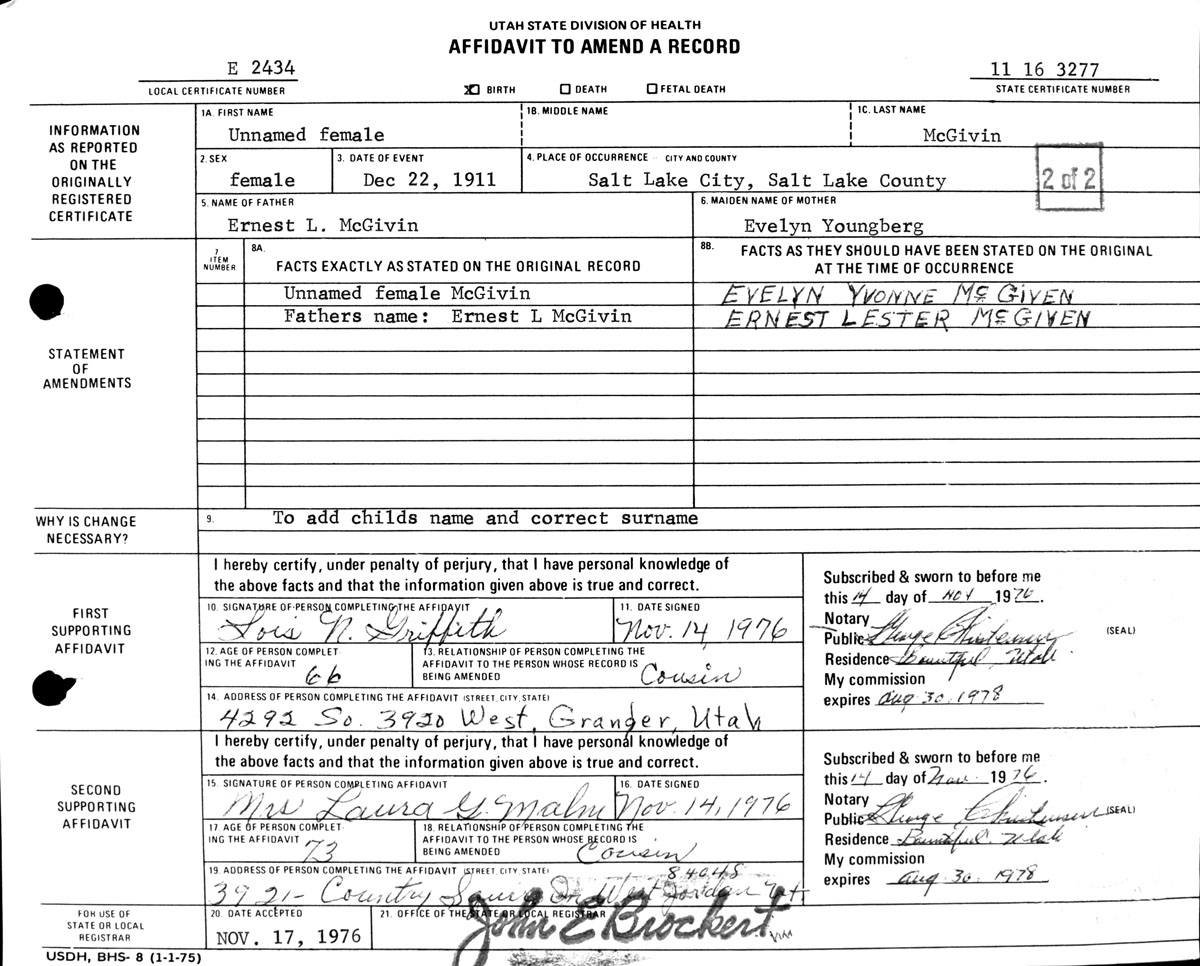 UTAH STATE DIVISION OF HEALTH
AFFIDAVIT TO AMEND A RECORD
E 2434
LOCAL CERTIFICATE NUMBER
X BIRTH DEATH FETAL DEATH
11 16 3277
STATE CERTIFICATE NUMBER
INFORMATION
AS REPORTED
ON THE
ORIGINALLY
REGISTERED
CERTIFICATE
1A. FIRST NAME
Unnamed female
1B. MIDDLE NAME
1C. LAST NAME
McGivin
2. SEX
female
3. DATE OF EVENT
Dec 22, 1911
4. PLACE OF OCCURRENCE - CITY AND COUNTY
Salt Lake City, Salt Lake County
2 of 2
5. NAME OF FATHER
Ernest L. McGivin
6. MAIDEN NAME OF MOTHER
Evelyn Youngberg
STATEMENT
OF
AMENDMENTS
7
ITEM
NUMBER
8A.
FACTS EXACTLY AS STATED ON THE ORIGINAL RECORD
8B.
FACTS AS THEY SHOULD HAVE BEEN STATED ON THE ORIGINAL
AT THE TIME OF OCCURRENCE
Unnamed female McGivin
EVELYN YVONNE McGIVEN
Fathers name: Ernest L McGivin
ERNEST LESTER McGIVEN
WHY IS CHANGE
NECESSARY?
9.
To add childs name and correct surname
FIRST
SUPPORTING
AFFIDAVIT
I hereby certify, under penalty of perjury, that I have personal knowledge of
the above facts and that the information given above is true and correct.
10. SIGNATURE OF PERSON COMPLETING THE AFFIDAVIT
Lois N. Griffith
11. DATE SIGNED
Nov. 14, 1976
12. AGE OF PERSON COMPLET-
ING THE AFFIDAVIT
66
13. RELATIONSHIP OF PERSON COMPLETING THE
AFFIDAVIT TO THE PERSON WHOSE RECORD IS
BEING AMENDED
Cousin
14. ADDRESS OF PERSON COMPLETING THE AFFIDAVIT (STREET, CITY, STATE)
4292 So. 3920 West, Granger, Utah
Subscribed & sworn to before me
this 14 day of Nov 1976.
Notary
Public Christensen
(SEAL)
Residence Bountiful, Utah
My commission
expires Aug 30, 1978
SECOND
SUPPORTING
AFFIDAVIT
I hereby certify, under penalty of perjury, that I have personal knowledge of
the above facts and that the information given above is true and correct.
15. SIGNATURE OF PERSON COMPLETING AFFIDAVIT
Mrs Laura G. Malm
16. DATE SIGNED
Nov. 14, 1976
17. AGE OF PERSON COMPLET-
ING THE AFFIDAVIT
73
18. RELATIONSHIP OF PERSON COMPLETING THE
AFFIDAVIT TO THE PERSON WHOSE RECORD IS
BEING AMENDED
Cousin
19. ADDRESS OF PERSON COMPLETING THE AFFIDAVIT (STREET, CITY, STATE)
84048
3921- Country Squire Dr West Jordan Ut
Subscribed & sworn to before me
this 14 day of Nov. 1976.
Notary
Public Christensen
(SEAL)
Residence Bountiful, Utah
My commission
expires Aug. 30, 1978
FOR USE OF
STATE OR LOCAL
REGISTRAR
20. DATE ACCEPTED
NOV. 17, 1976
21. OFFICE OF THE STATE OR LOCAL REGISTRAR
John E Brockert
USDH, BHS- 8 (1-1-75)